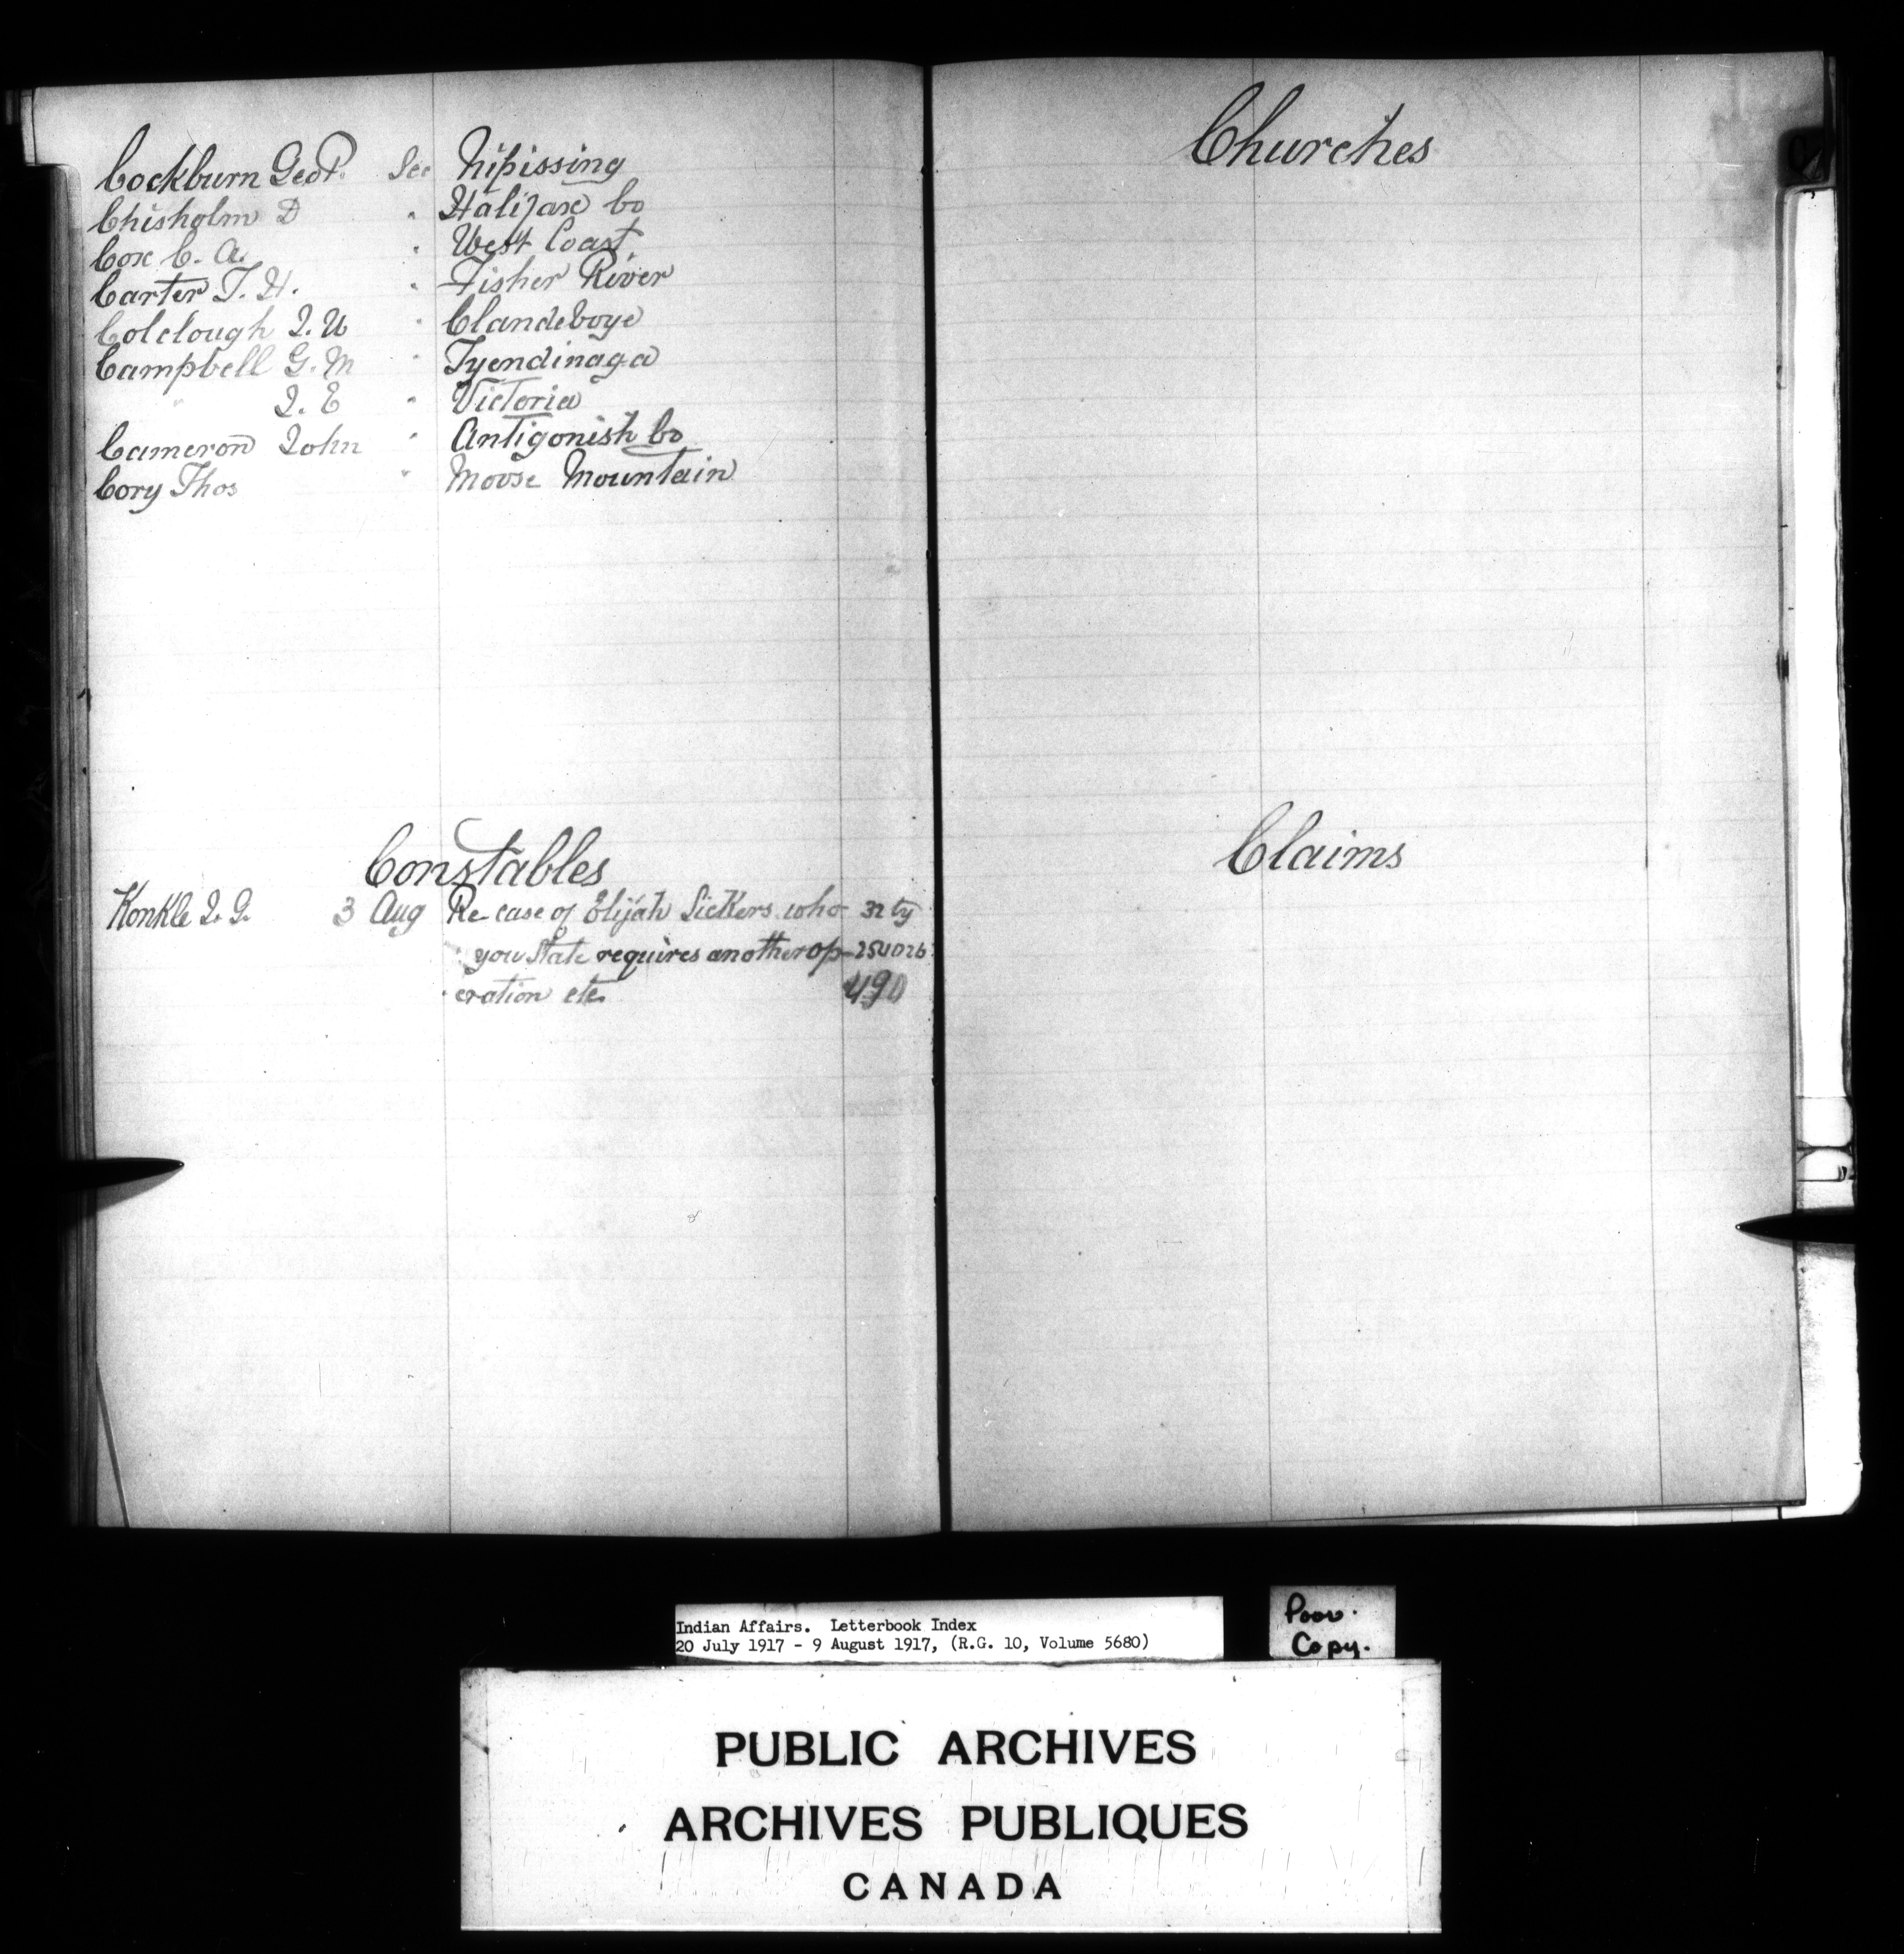 Cockburn Geo P. See Nipissing
Chisholm D " Halifax Co
Cox C. A. " West Coast
Carter T. H. " Fisher River
Colclough J. W " Clandeboye
Campbell G. M " Tyendinaga
" J. E " Victoria
Cameron John " Antigonish Co
Cory Thos " Moose Mountain
Constables
Konkle J. G. 3 Aug Re case of Elijah Sickers who 32 ty
you state requires another op- 254026
eration etc. 490
Churches
Claims
Indian Affairs. Letterbook Index
20 July 1917 - 9 August 1917, (R.G. 10, Volume 5680)
Poor
Copy.
PUBLIC ARCHIVES
ARCHIVES PUBLIQUES
CANADA